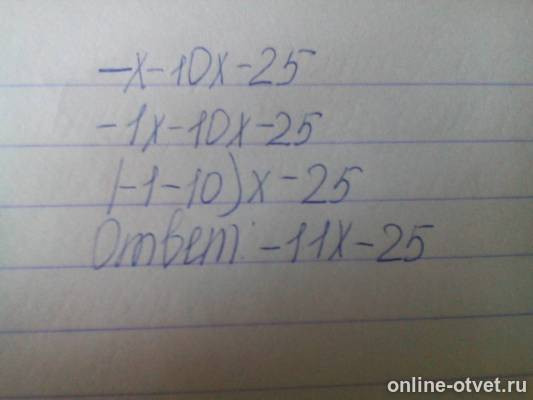 -x-10x-25
-1x-10x-25
(-1-10)x-25
Ответ: -11x-25
online-otvet.ru